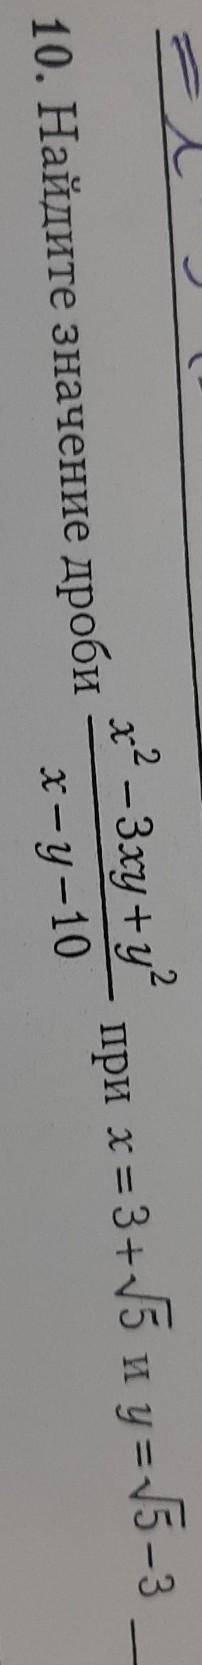 10. Найдите значение дроби \frac{x^2-3xy+y^2}{x-y-10} при x=3+\sqrt{5} и y=\sqrt{5}-3